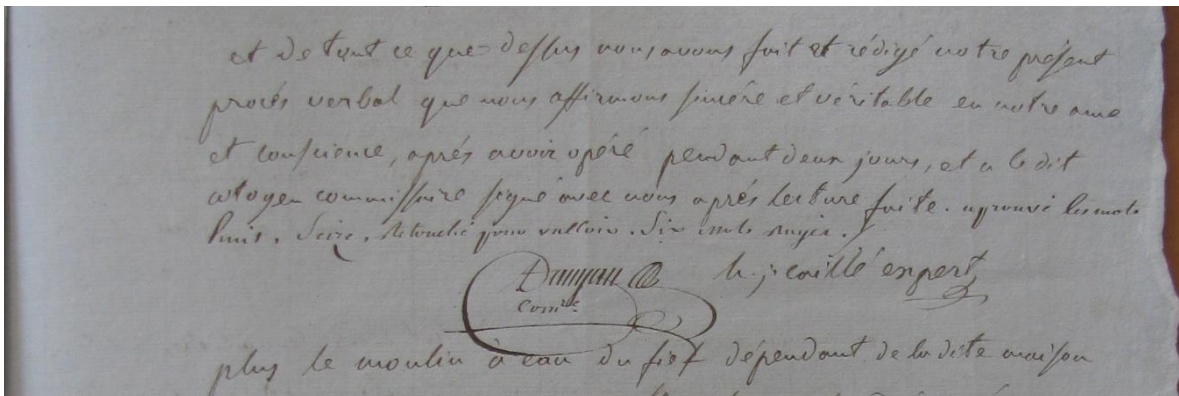 et de tout ce que dessus nous avons fait et rédigé notre présent
procés verbal que nous affirmons sincére et véritable en notre ame
et conscience, aprés avoir opéré pendant deux jours, et a le dit
citoyen commissaire signé avec nous aprés lecture faite. aprouvé les mots
huit. Seize. retouché pour valloir. Six mots rayés.
h. j. caillé expert
Com.re
plus le moulin à eau du fief dépendant de la dite maison